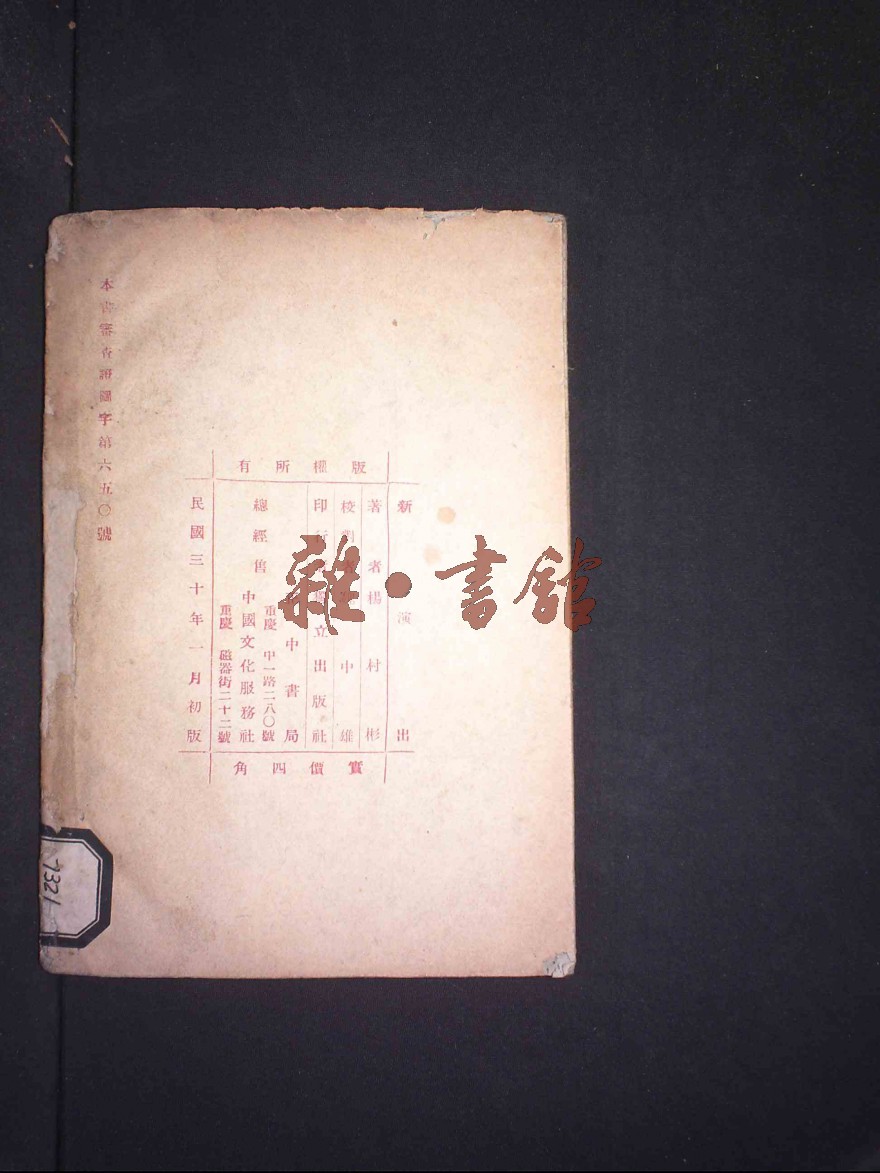 版權所有
新演出
著者楊村彬
校對 中雄
印行 立出版社
總經售
中書局
重慶中一路二八〇號
中國文化服務社
重慶磁器街二十二號
民國三十年一月初版
實價四角
本書審查證圖字第六五〇號
7321
雜•書館